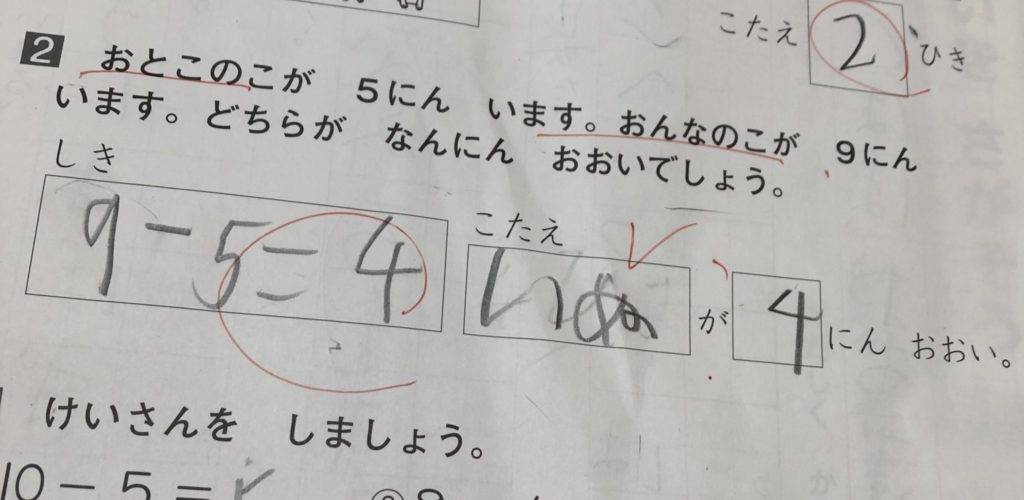 こたえ 2 ひき
2 おとこのこが 5にん います。おんなのこが 9にん
います。どちらが なんにん おおいでしょう。
しき
9-5=4
こたえ
いぬ が 4 にん おおい。
けいさんを しましょう。
10-5=